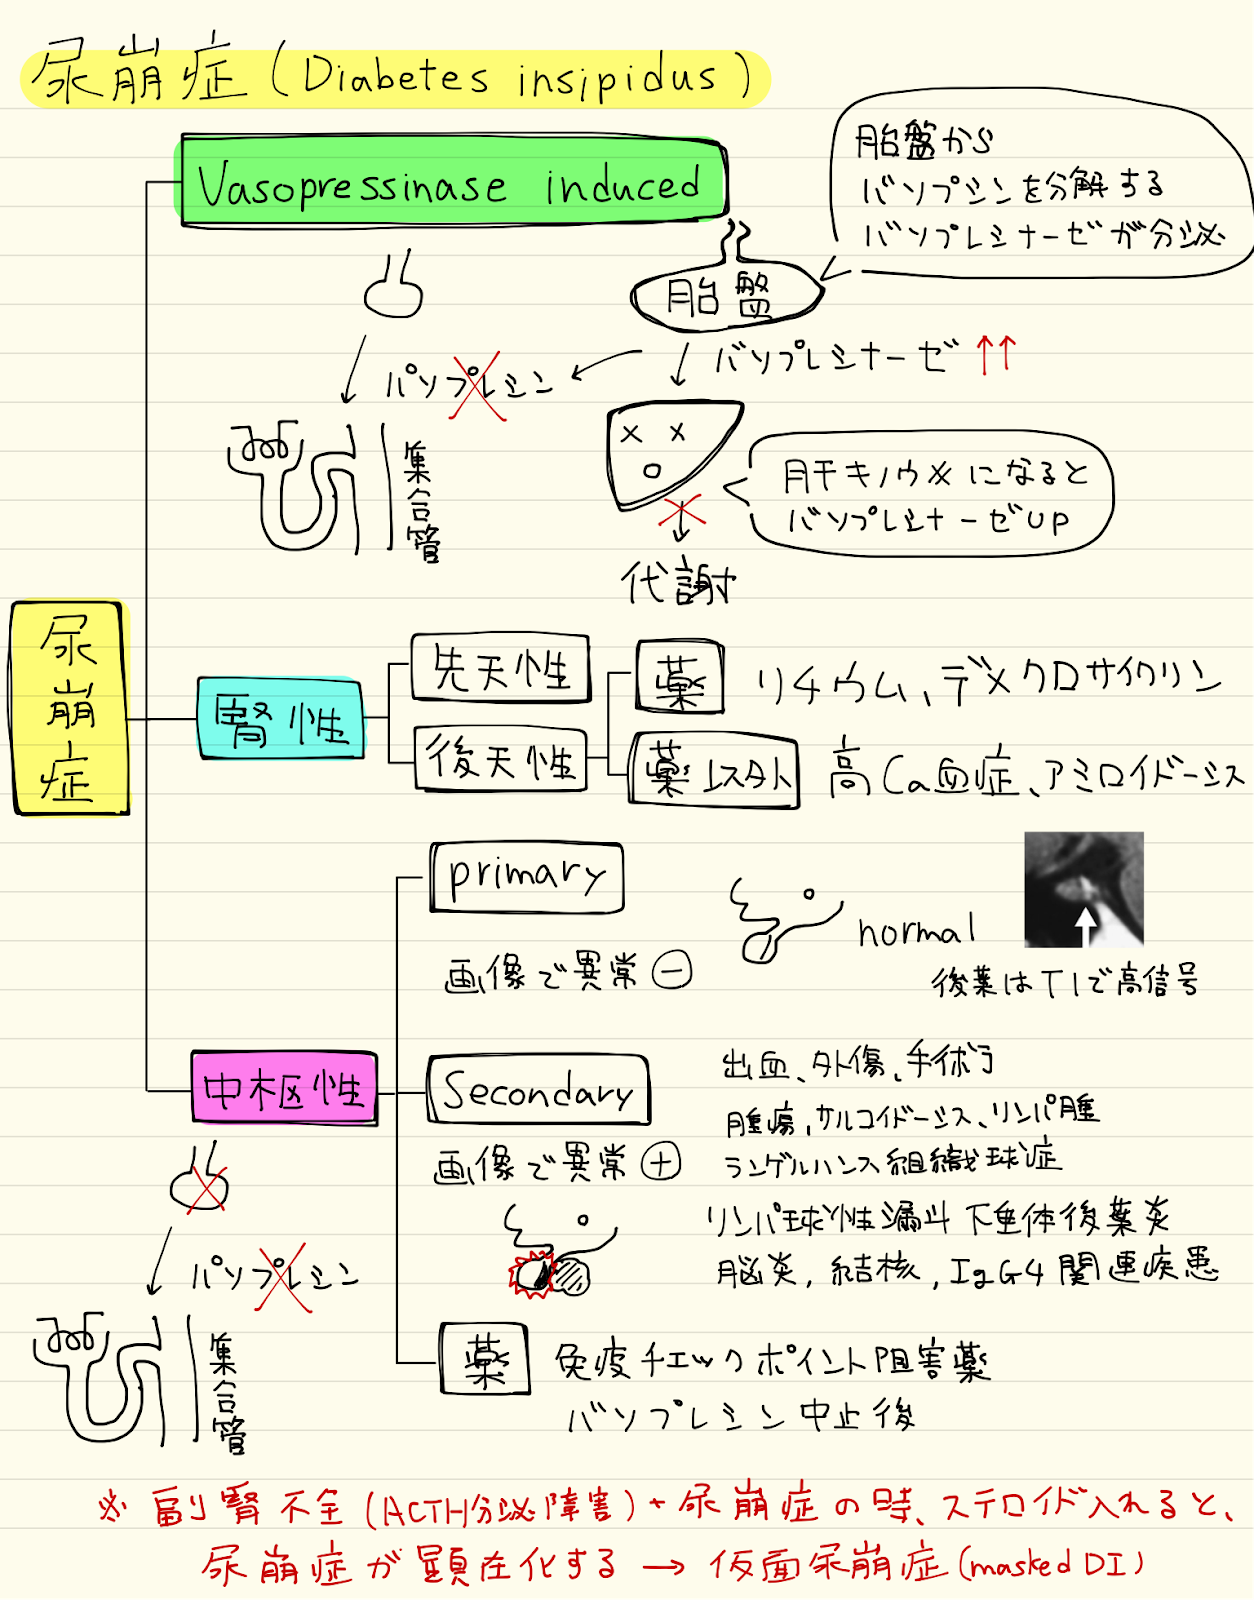 尿崩症 (Diabetes insipidus)
Vasopressinase induced
胎盤から
バソプシンを分解する
バソプレシナーゼが分泌
胎盤
バソプレシナーゼ ↑↑
バソプレシン
集合管
肝キノウ×になると
バソプレシナーゼUP
代謝
尿崩症
腎性
先天性
薬
リチウム、デメクロサイクリン
後天性
薬以外
高Ca血症、アミロイドーシス
primary
画像で異常⊖
normal
後葉はT1で高信号
中枢性
Secondary
画像で異常⊕
出血、外傷、手術
腫瘍、サルコイドーシス、リンパ腫
ランゲルハンス組織球症
リンパ球性漏斗下垂体後葉炎
脳炎, 結核, IgG4関連疾患
バソプレシン
集合管
薬
免疫チェックポイント阻害薬
バソプレシン中止後
※ 副腎不全(ACTH分泌障害)+尿崩症の時、ステロイド入れると、
尿崩症が顕在化する → 仮面尿崩症(masked DI)